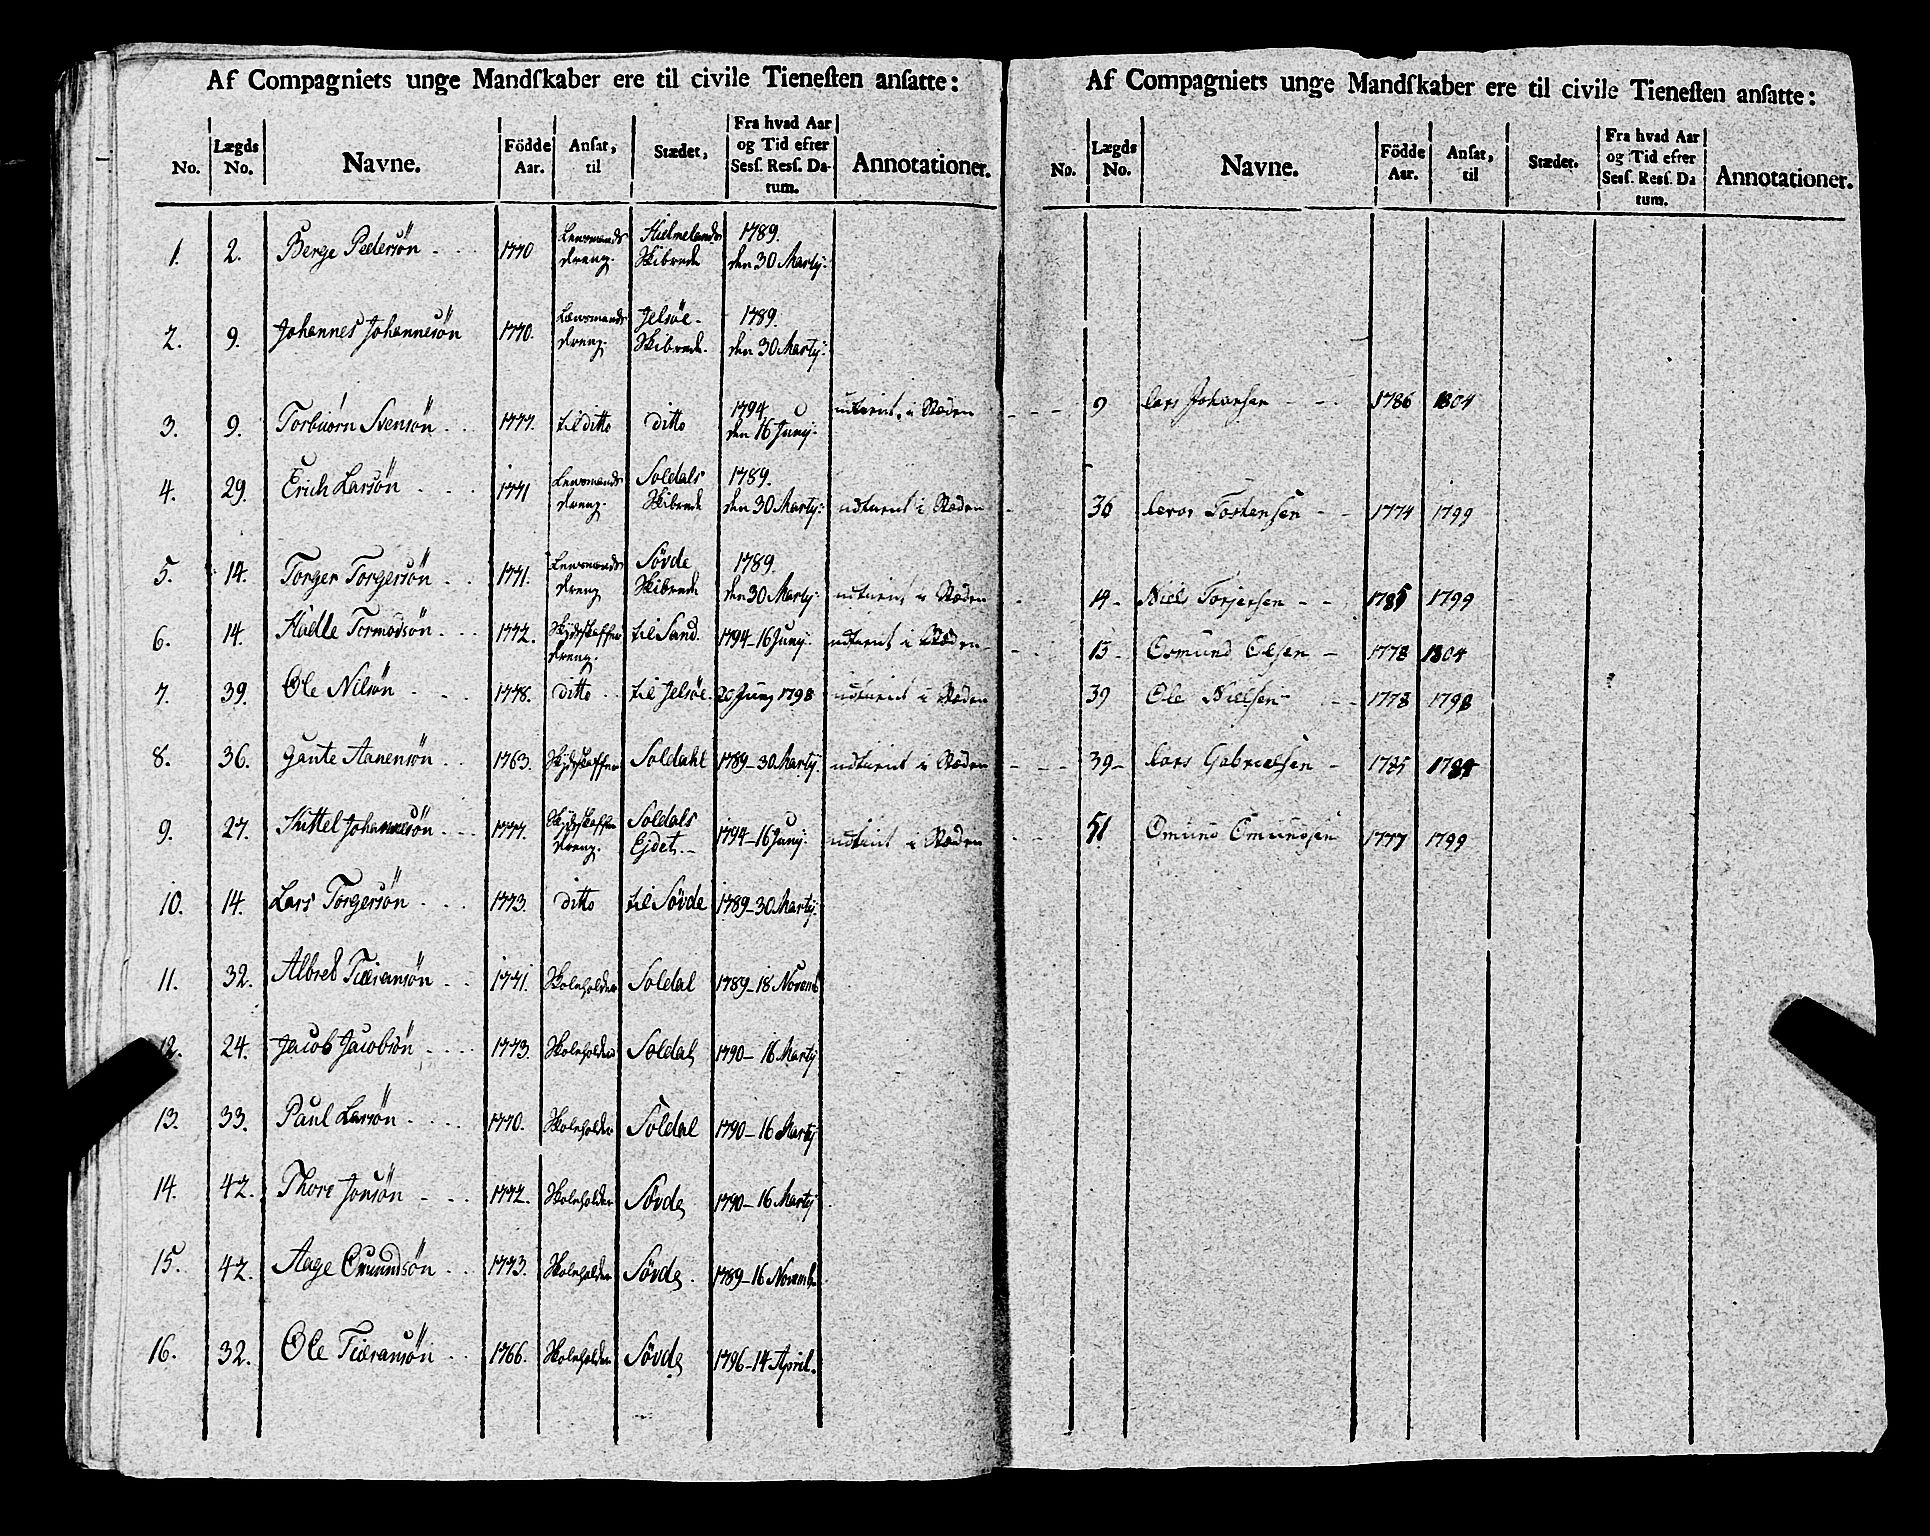 Af Compagniets unge Mandſkaber ere til civile Tieneſten anſatte:
No. Lægds No. Navne. Födde Aar. Anſat, til Stædet, Fra hvad Aar og Tid efter Sesſ. Resſ. Datum. Annotationer.
1. 2. Berge Pedersøn 1770 Lensmands dreng. Hielmelands Skibrede 1789. den 30 Martÿ:
2. 9. Johannes Johannesøn 1770. Lænsmands dreng. Jelsøe Skibrede. 1789. den 30 Martÿ:
3. 9. Torbiørn Svensøn 1777. til ditto ditto 1794. den 16 Junÿ: i Ræden
4. 29. Erich Larsøn 1771 Lensmands dreng. Soldals Skibrede 1789. den 30 Martÿ: i Ræden
5. 14. Torger Torgersøn 1771. Lensmands dreng Søvde Skibrede 1789. den 30 Martÿ: Ræden
6. 14. Helle Tormodsøn 1772. Skydskaffer dreng. til Sand. 1794-16 Junÿ: i Ræden
7. 39. Ole Nilsøn 1778. ditto til Jelsøe. 20 Juny 1798 i Ræden
8. 36. Gunte Aanensøn 1763. Skydskaffer Soldahl 1789-30 Martÿ. i Ræden
9. 27. Kittel Johannesøn 1777. Skydskaffer dreng. Soldals Ejdet. 1794-16 Junÿ: i Ræden
10. 14. Lars Torgersøn 1773. ditto til Søvde 1789-30 Martÿ.
11. 32. Albret Tieransøn 1771. Skoleholder Soldal 1789-18 Novemb
12. 24. Jacob Jacobsøn 1773. Skoleholder Soldal 1790-16 Martÿ
13. 33. Paul Larsøn 1770. Skoleholder Soldal 1790-16 Martÿ
14. 42. Thore Jonsøn 1772. Skoleholder Søvde 1790-16 Martÿ
15. 42. Aage Omundsøn 1773. Skoleholder Søvde. 1789-16 Novemb.
16. 32. Ole Tieransøn 1766. Skoleholder Søvde 1796-14 April.
Af Compagniets unge Mandſkaber ere til civile Tieneſten anſatte:
No. Lægds No. Navne. Födde Aar. Anſat, til Stædet. Fra hvad Aar og Tid efter Sesſ. Resſ. Datum. Annotationer.
9 Lars Johansen 1786 1804
36 Tostensen 1774 1799
14 Niels Torjersen 1785 1799
15 Osmund Olsen 1778 1804
39 Ole Nielsen 1778 1798
39 Lars Gabrielsen 1785
51 Omund Omundsen 1777 1799